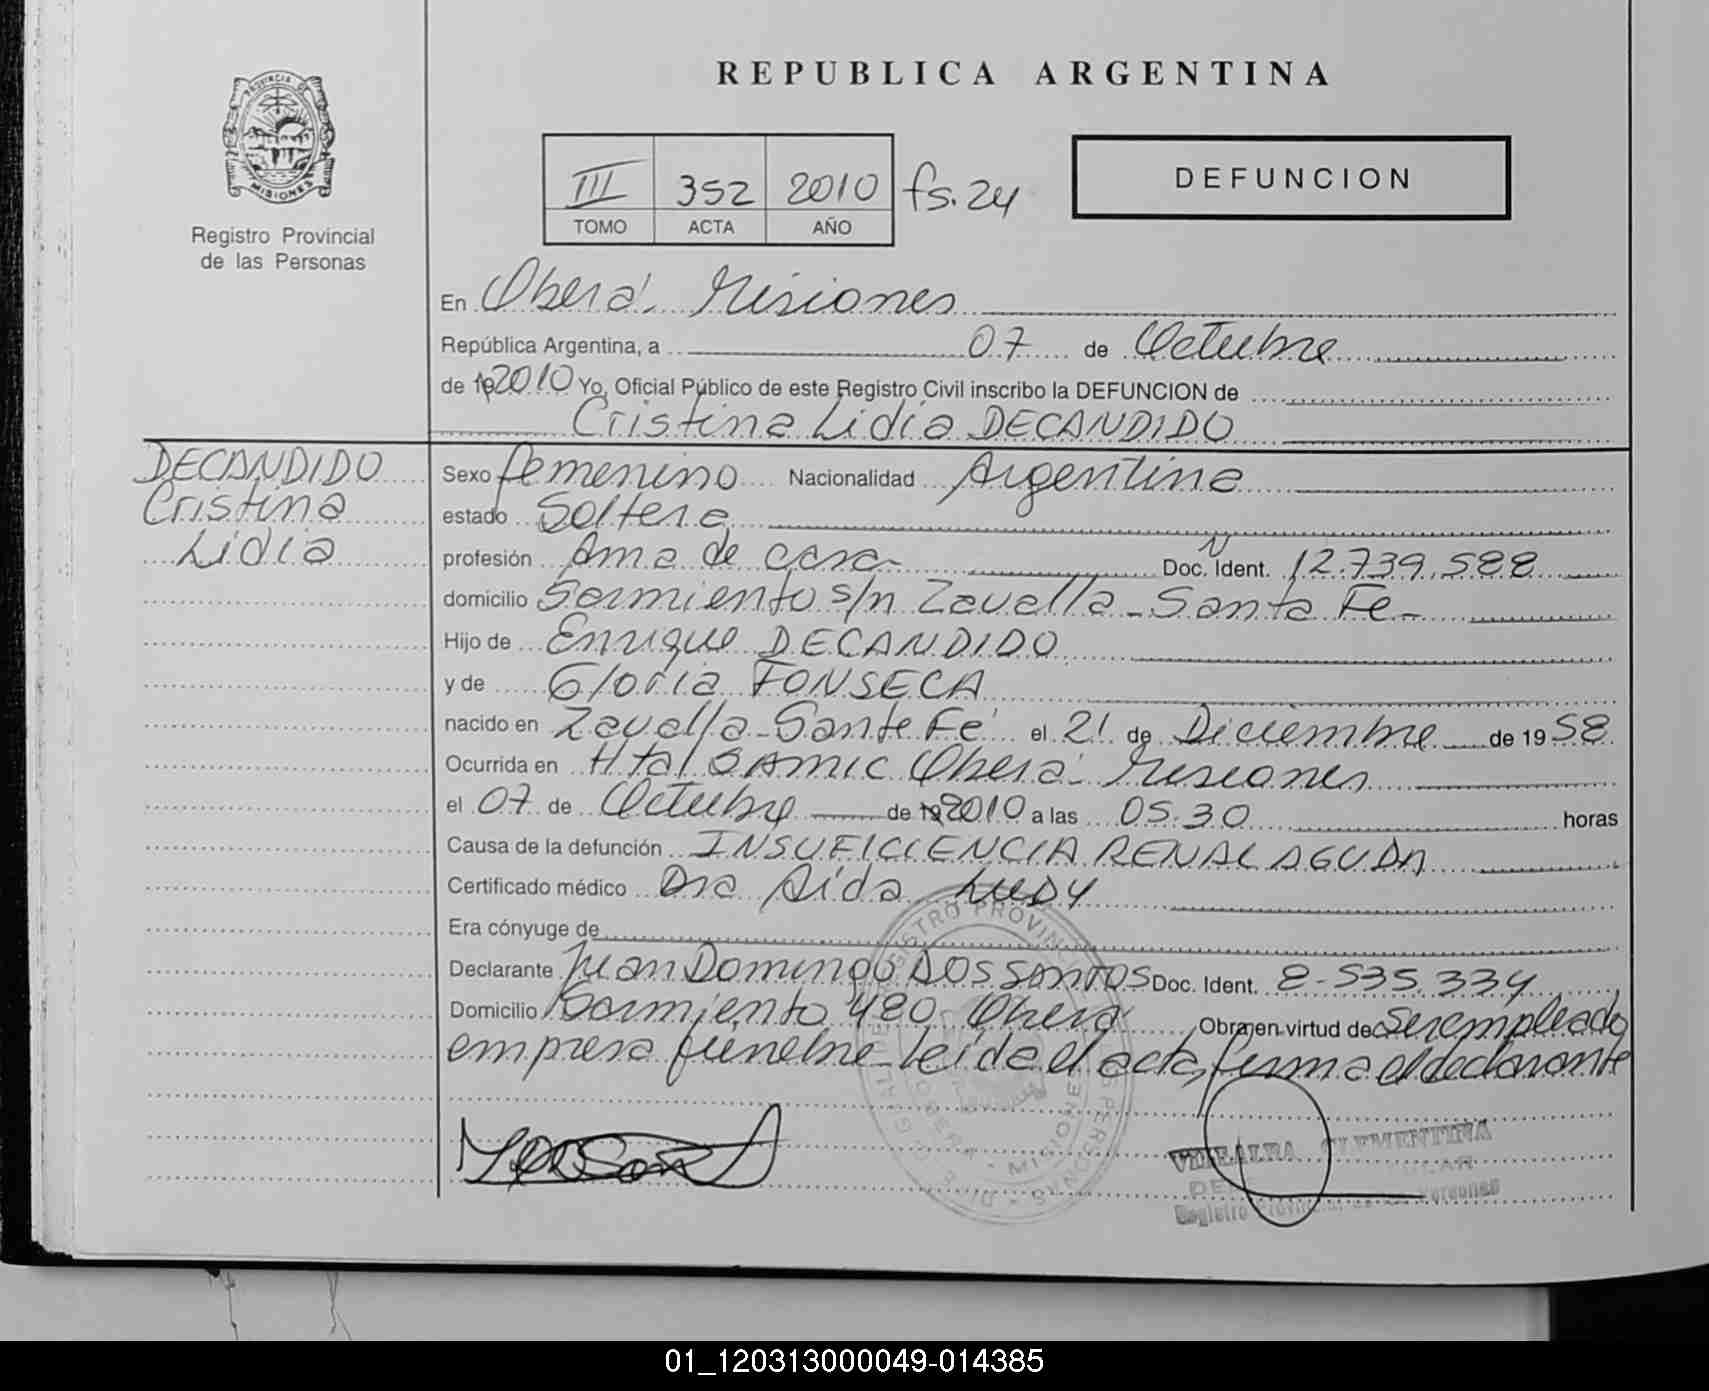 REPUBLICA ARGENTINA
PROVINCIA DE
MISIONES
Registro Provincial
de las Personas
III 352 2010 fs. 24
TOMO ACTA AÑO
DEFUNCION
En Oberá - Misiones
República Argentina, a 07 de Octubre
de 19 2010 Yo, Oficial Público de este Registro Civil inscribo la DEFUNCION de
Cristina Lidia DECANDIDO
DECANDIDO
Cristina
Lidia
Sexo femenino Nacionalidad Argentina
estado Soltera
profesión Ama de casa Doc. N Ident. 12.739.588
domicilio Sarmiento s/n Zavalla - Santa Fe -
Hijo de Enrique DECANDIDO
y de Gloria FONSECA
nacido en Zavalla - Santa Fe el 21 de Diciembre de 19 58
Ocurrida en Htal SAMIC Oberá - Misiones
el 07 de Octubre de 19 2010 a las 05.30 horas
Causa de la defunción INSUFICIENCIA RENAL AGUDA
Certificado médico Dra Aída LUDY
Era cónyuge de
Declarante Juan Domingo DOS SANTOS Doc. Ident. 8-535.334
Domicilio Sarmiento 480 Oberá Obra en virtud de ser empleado
empresa fúnebre - Leída el acta, firma el declarante
VILLALBA CLEMENTINA
Registro Provincial de las Personas
01_120313000049-014385